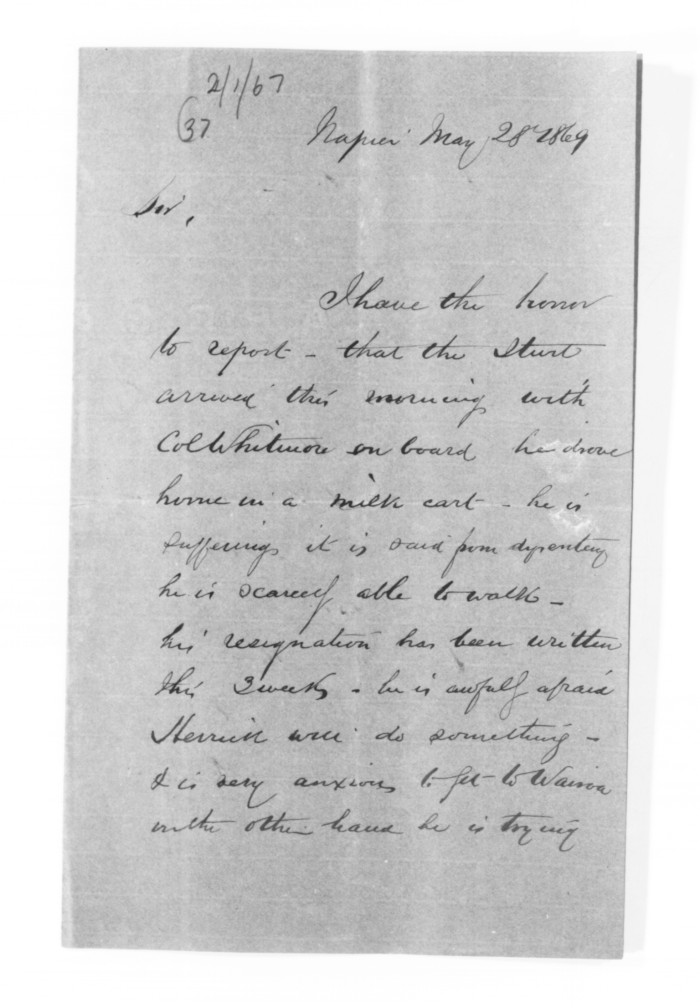 2/1/67
37
Napier May 28th 1869
Sir,
I have the honor
to report - that the Sturt
arrived this morning with
Col Whitmore on board he drove
home in a milk cart - he is
suffering it is said from dysentery
he is scarcely able to walk -
his resignation has been written
this 3 weeks - he is awfully afraid
Herrick will do something -
& is very anxious to get to Wairoa
on the other hand he is trying